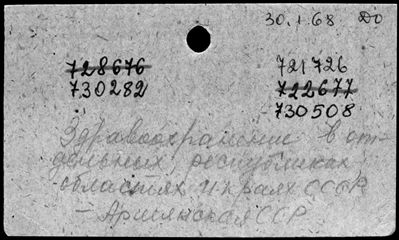 30.1.68 До
728676 721726
730282 722677
730508
Здравоохранение в от-
дельных республиках
областях и краях СССР
- Армянская ССР